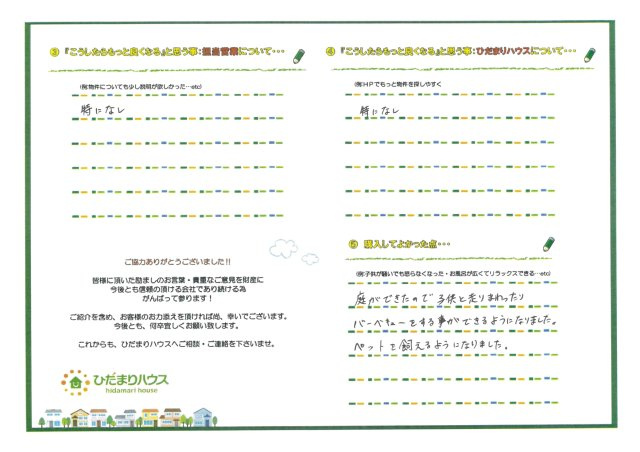 ③ 『こうしたらもっと良くなる』と思う事：担当営業について・・・
(例)物件についても少し説明が欲しかった…etc)
特になし
ご協力ありがとうございました!!
皆様に頂いた励ましのお言葉・貴重なご意見を財産に
今後とも信頼の頂ける会社であり続ける為
がんばって参ります！
ご紹介を含め、お客様のお力添えを頂ければ尚、幸いでございます。
今後とも、何卒宜しくお願い致します。
これからも、ひだまりハウスへご相談・ご連絡を下さいませ。
ひだまりハウス
hidamari house
④ 『こうしたらもっと良くなる』と思う事：ひだまりハウスについて・・・
(例)ＨＰでもっと物件を探しやすく
特になし
⑤ 購入してよかった点・・・
(例)子供が騒いでも怒らなくなった・お風呂が広くてリラックスできる…etc)
庭ができたので子供と走りまわったり
バーベキューをする事ができるようになりました。
ペットを飼えるようになりました。